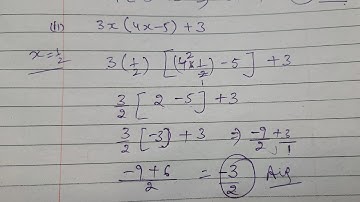 (ii) 3x(4x-5)+3
x=1/2 3(1/2) [(4×1/2)-5] +3
3/2 [2-5]+3
3/2 [-3]+3 ⇒ -9/2 + 3/1
-9+6/2 = -3/2 Ans